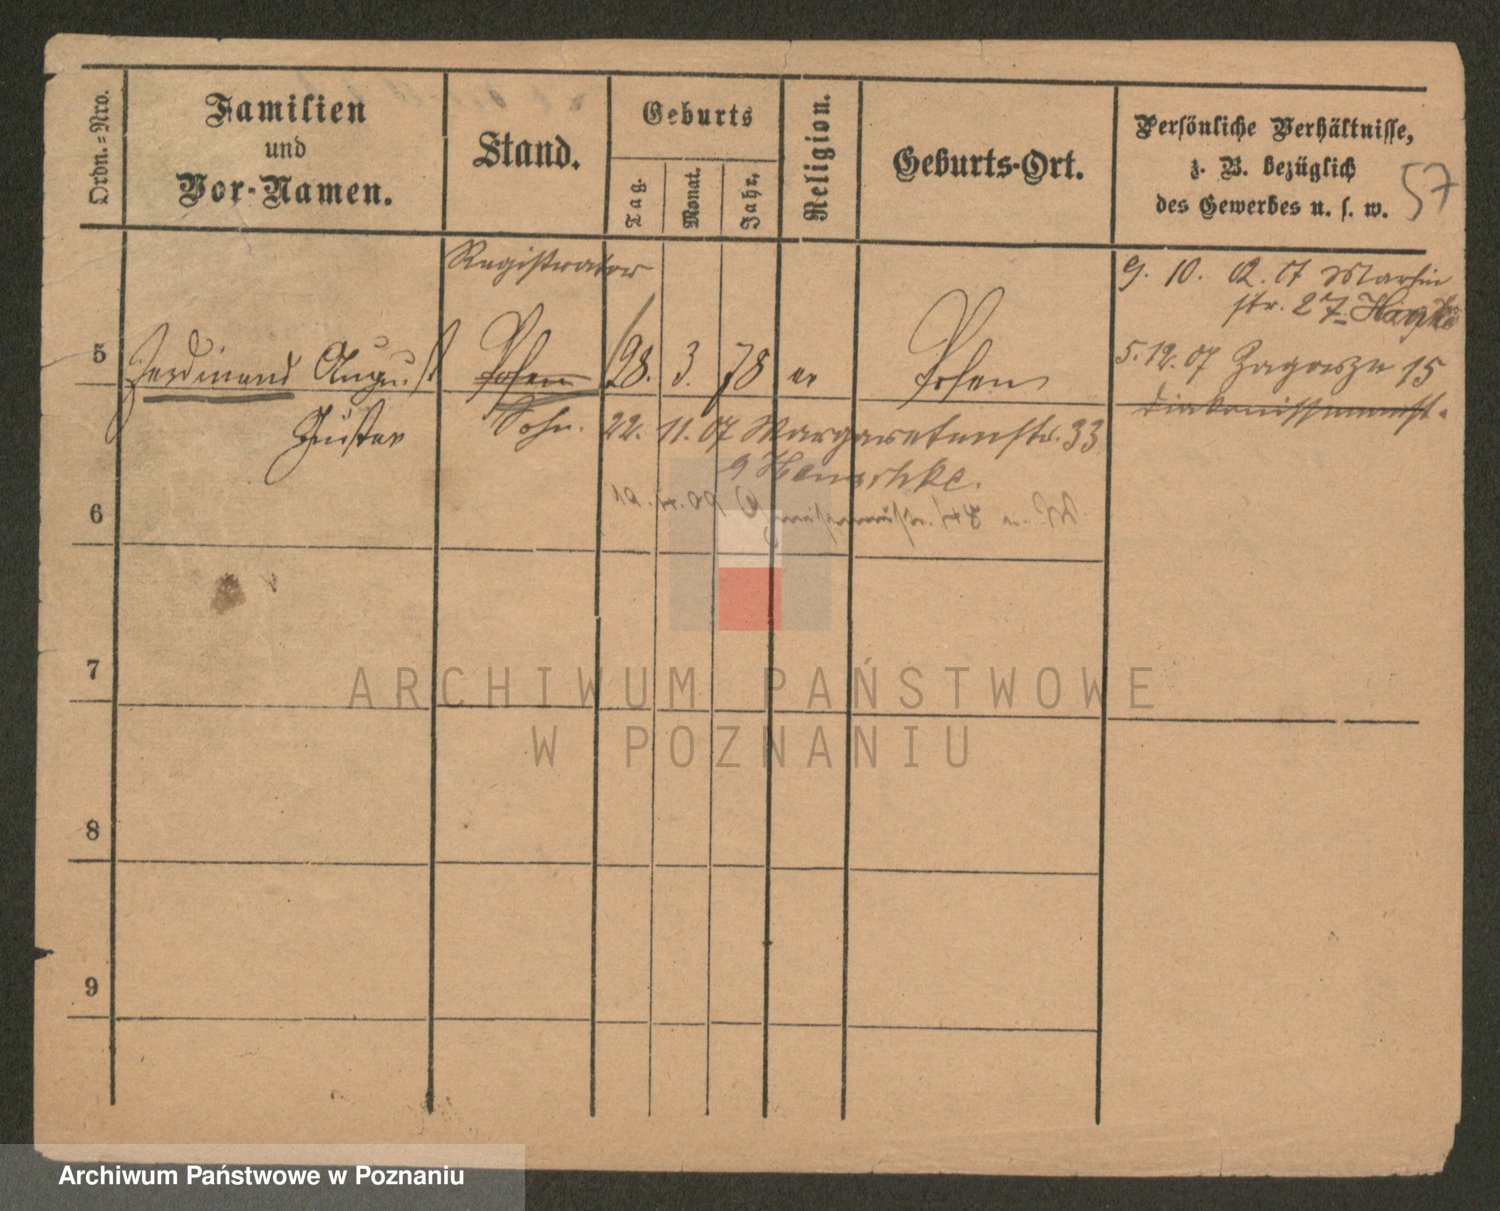 Ordn.=Nro.
Familien
und
Vor-Namen.
Stand.
Geburts
Tag.
Monat.
Jahr.
Religion.
Geburts-Ort.
Persönliche Verhältnisse,
z. B. bezüglich
des Gewerbes u. s. w.
57
Registrator
9. 10. 02. 07 Martin
str. 27
5
Ferdinand August
28. 3. 78 ev Posen
5. 12. 07 15
Gustav
Sohn.
22. 11. 07 Margaretenstr. 33
6
7
8
9
ARCHIWUM PAŃSTWOWE
W POZNANIU
Archiwum Państwowe w Poznaniu